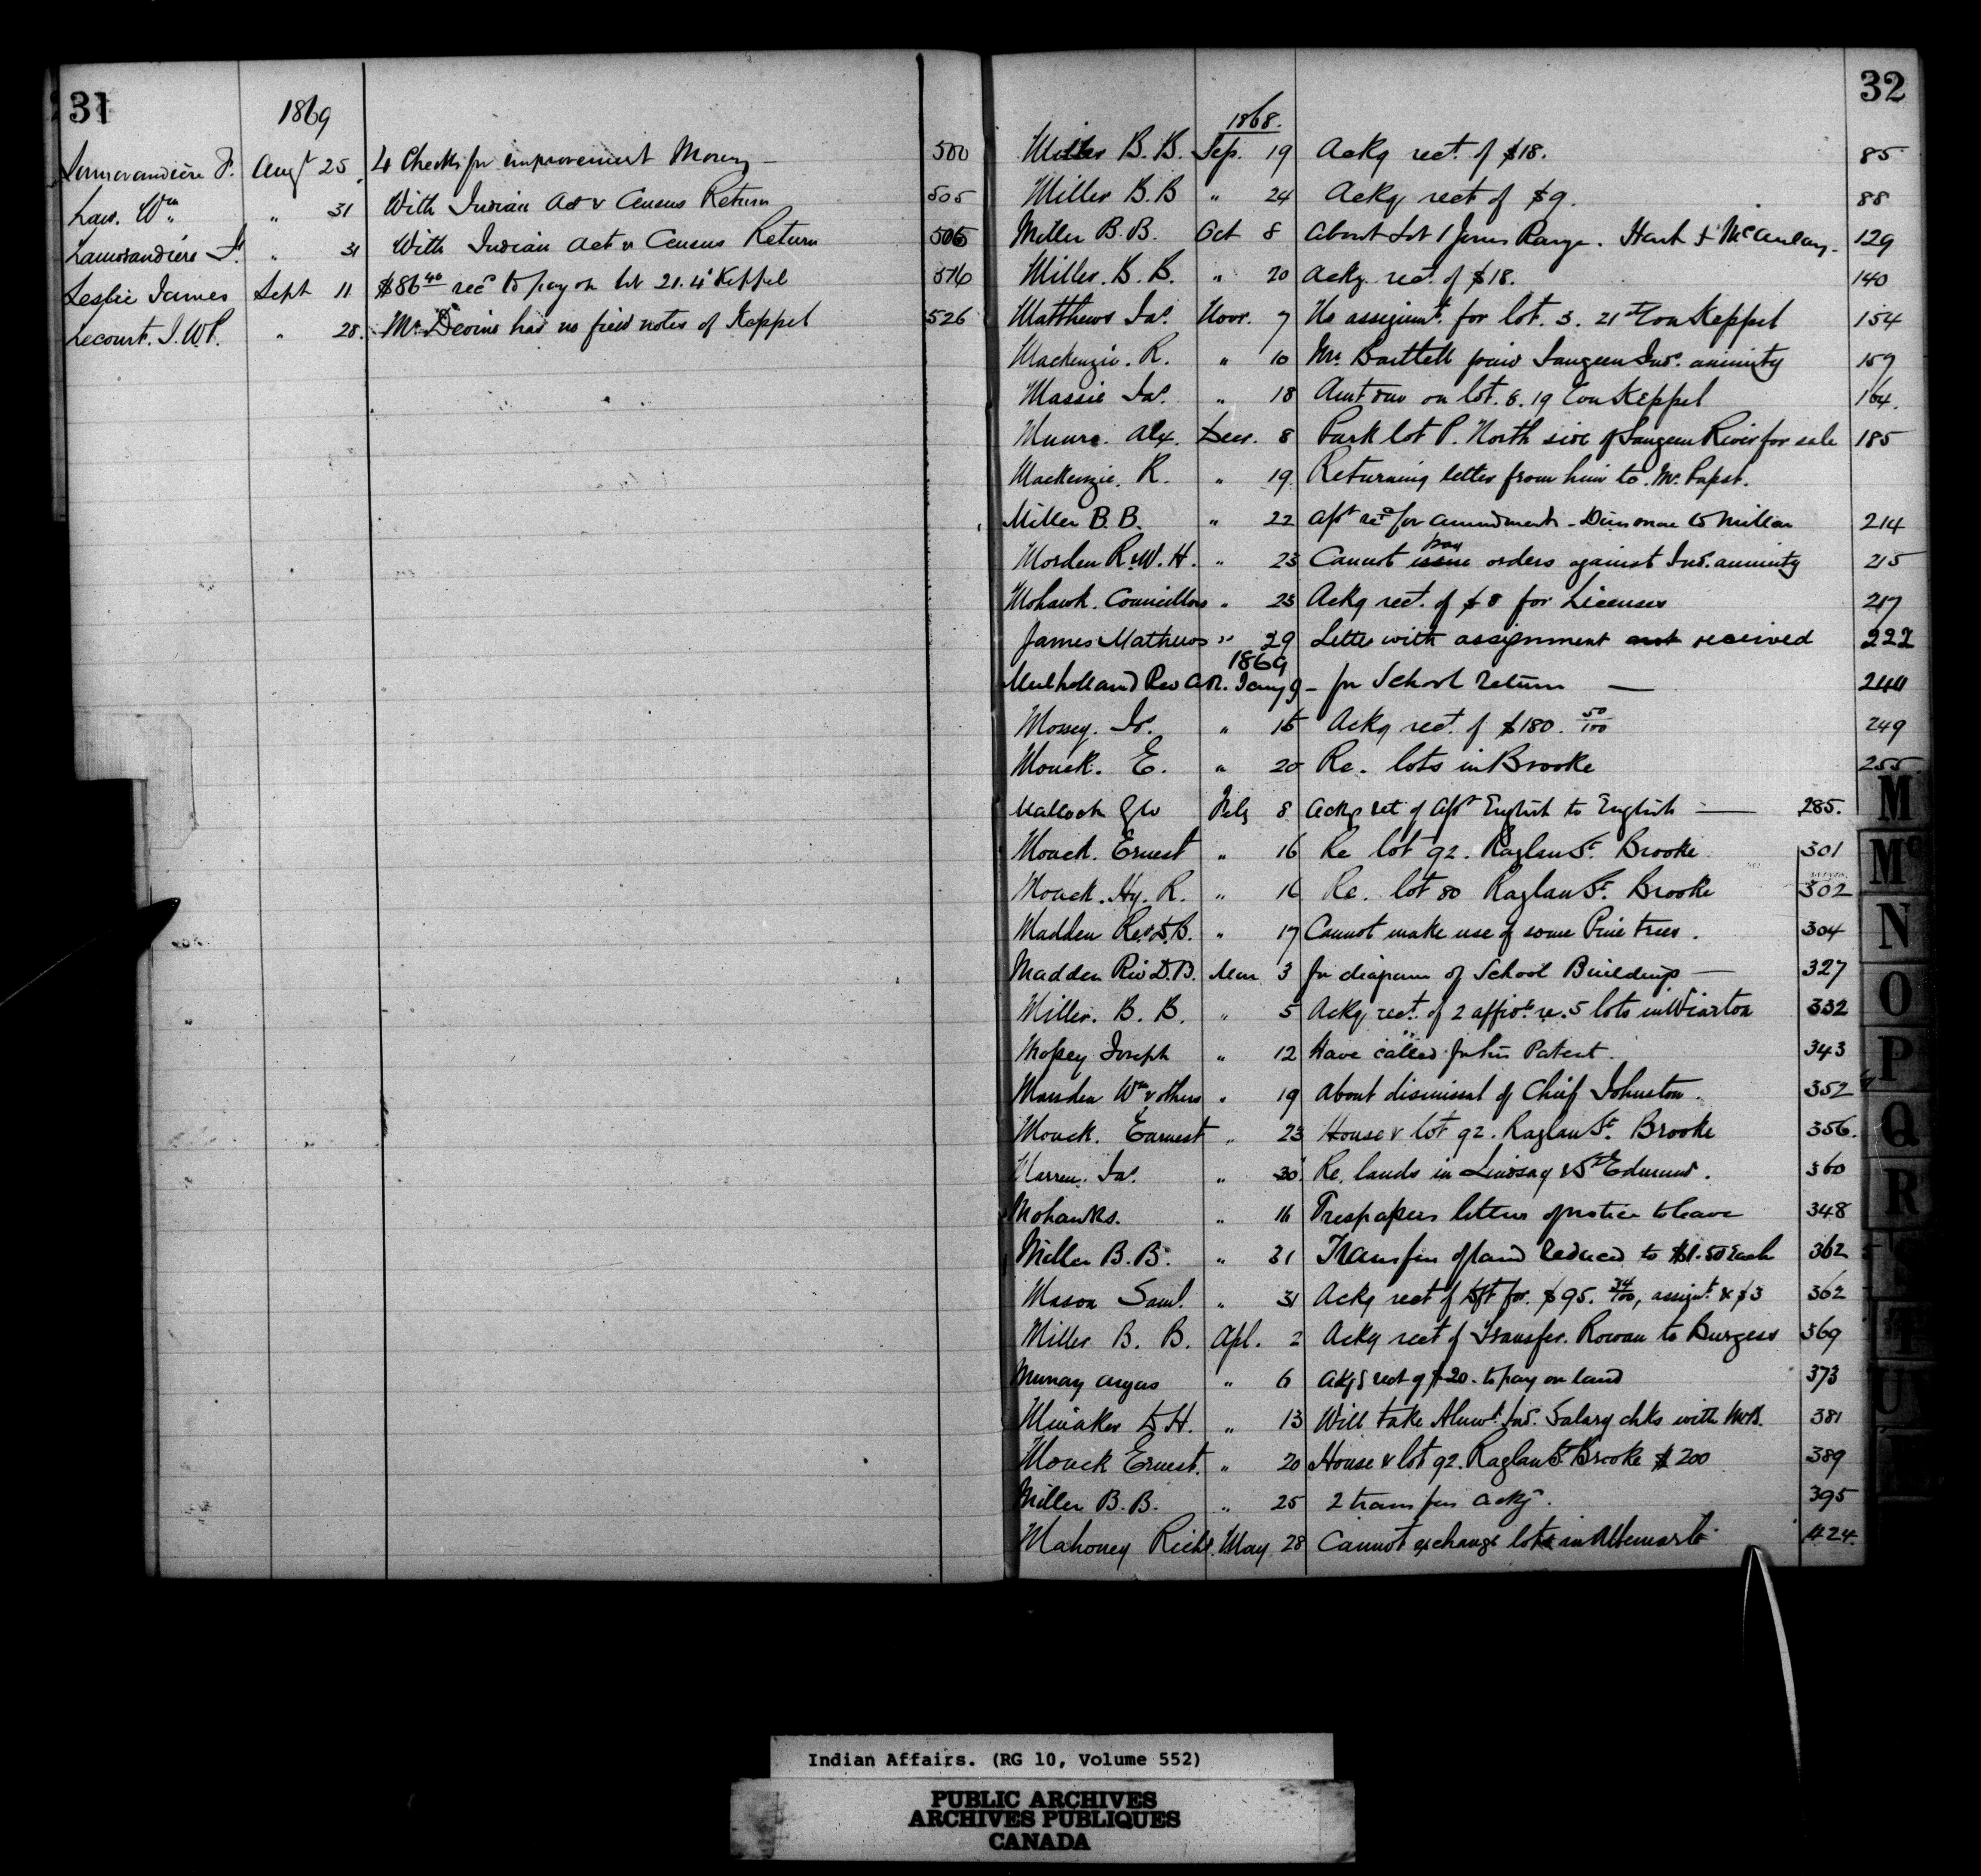 31
1869
Lamorandière F. Augt 25 4 Checks for improvement Money — 500
Law. Wm " 31 With Indian Act & Census Return 505
Lamorandière F. " 31 With Indian Act & Census Return 506
Leslie James Sept 11 $86 40 recd to pay on lot 21. 4 Keppel 516
Lecourt. J. W. P. " 28. Mr Devine has no field notes of Keppel 526
32
1868.
Miller B. B. Sep. 19 Ackg rect. of $18. 85
Miller B. B " 24 Ackg rect of $9. 88
Miller B. B. Oct 8 About Lot 1 Jones Range. Hart & McAulay. 129
Miller. B. B. " 20 Ackg rect. of $18. 140
Matthews Jas. Novr. 7 No assignmt. for lot. 3. 21st Con Keppel 154
Mackenzie. R. " 10 Mr. Bartlett paid Saugeen Inds. annuity 159
Massie Jas. " 18 Amt due on lot. 8. 19 Con Keppel 164.
Munro. Alex. Decr. 8 Park lot P. North side of Saugeen River for sale 185
Mackenzie. R. " 19. Returning letter from him to Mr. Papst.
Miller B. B. " 22 Afft recd for amendment - Dinsmore to Millar 214
Morden R. W. H. " 23 Cannot issue pay orders against Ind. annuity 215
Mohawk. Councillors " 23 Ackg rect. of $8 for Licenses 217
James Mathews " 29 Letter with assignment not received 222
1869
Mulholland Rev A R. Jany 9 - for School return — 244
Mossey. Js. " 15 Ackg rect. of $180. 50/100 249
Monck. E. " 20 Re. lots in Brooke 255
Mallock Feby 8 Ackg ret of Afft English to English — 285.
Monck. Ernest " 16 Re lot 92. Raglan St. Brooke 301
Monck. Hy. R. " 16 Re. lot 80 Raglan St. Brooke 302
Madden Rev. D. B. " 17 Cannot make use of some Pine trees. 304
Madden Rev D. B. Mar 3 for diagram of School Buildings — 327
Miller. B. B. " 5 Ackg rect. of 2 affidts. re. 5 lots in Wiarton 332
Mossey Joseph " 12 Have called for his Patent. 343
Marsden Wm & others " 19 About dismissal of Chief Johnston. 352
Monck. Earnest " 23 House & lot 92. Raglan St. Brooke 356.
Warren. Jas. " 30 Re. lands in Lindsay & St Edmund. 360
Mohawks. " 16 Trespassers letters of notice to leave 348
Miller B. B. " 31 Transfers of land reduced to $1.50 each 362
Mason Saml. " " 31 Ackg rect of dft for. $95. 34/100, assignt. & $3 362
Miller B. B. Apl. 2 Ackg rect of Transfer. Rowan to Burgess 369
Murray Angus " 6 Ackg rect of $20. to pay on land 373
D H. " 13 Will take Alnwk. Ind. Salary chks with 381
Monck Ernest. " 20 House & lot 92. Raglan St. Brooke $200 389
Miller B. B. " 25 2 transfers ackg. 395
Mahoney Richd. May 28 Cannot exchange lots in Albemarle 424.
M
Mc
N
O
P
Q
R
S
T
U
Indian Affairs. (RG 10, Volume 552)
PUBLIC ARCHIVES
ARCHIVES PUBLIQUES
CANADA